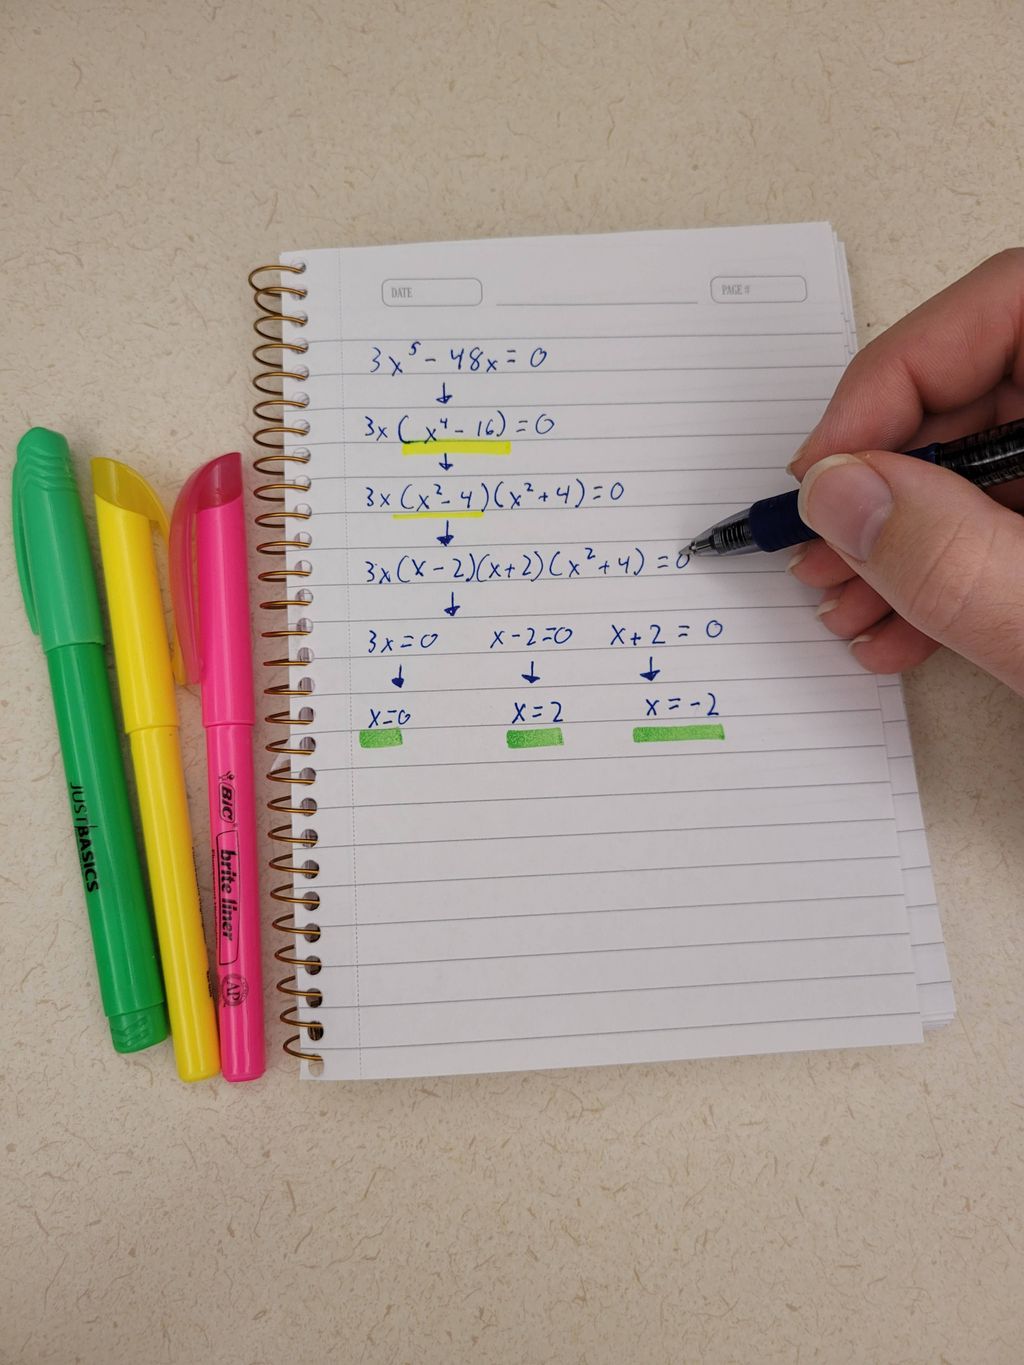 DATE
PAGE #
3x⁵ - 48x = 0
↓
3x (x⁴ - 16) = 0
↓
3x (x² - 4)(x² + 4) = 0
↓
3x (x - 2)(x + 2)(x² + 4) = 0
↓
3x = 0 x - 2 = 0 x + 2 = 0
↓ ↓ ↓
x = 0 x = 2 x = -2
JUST BASICS
BIC brite liner
AP